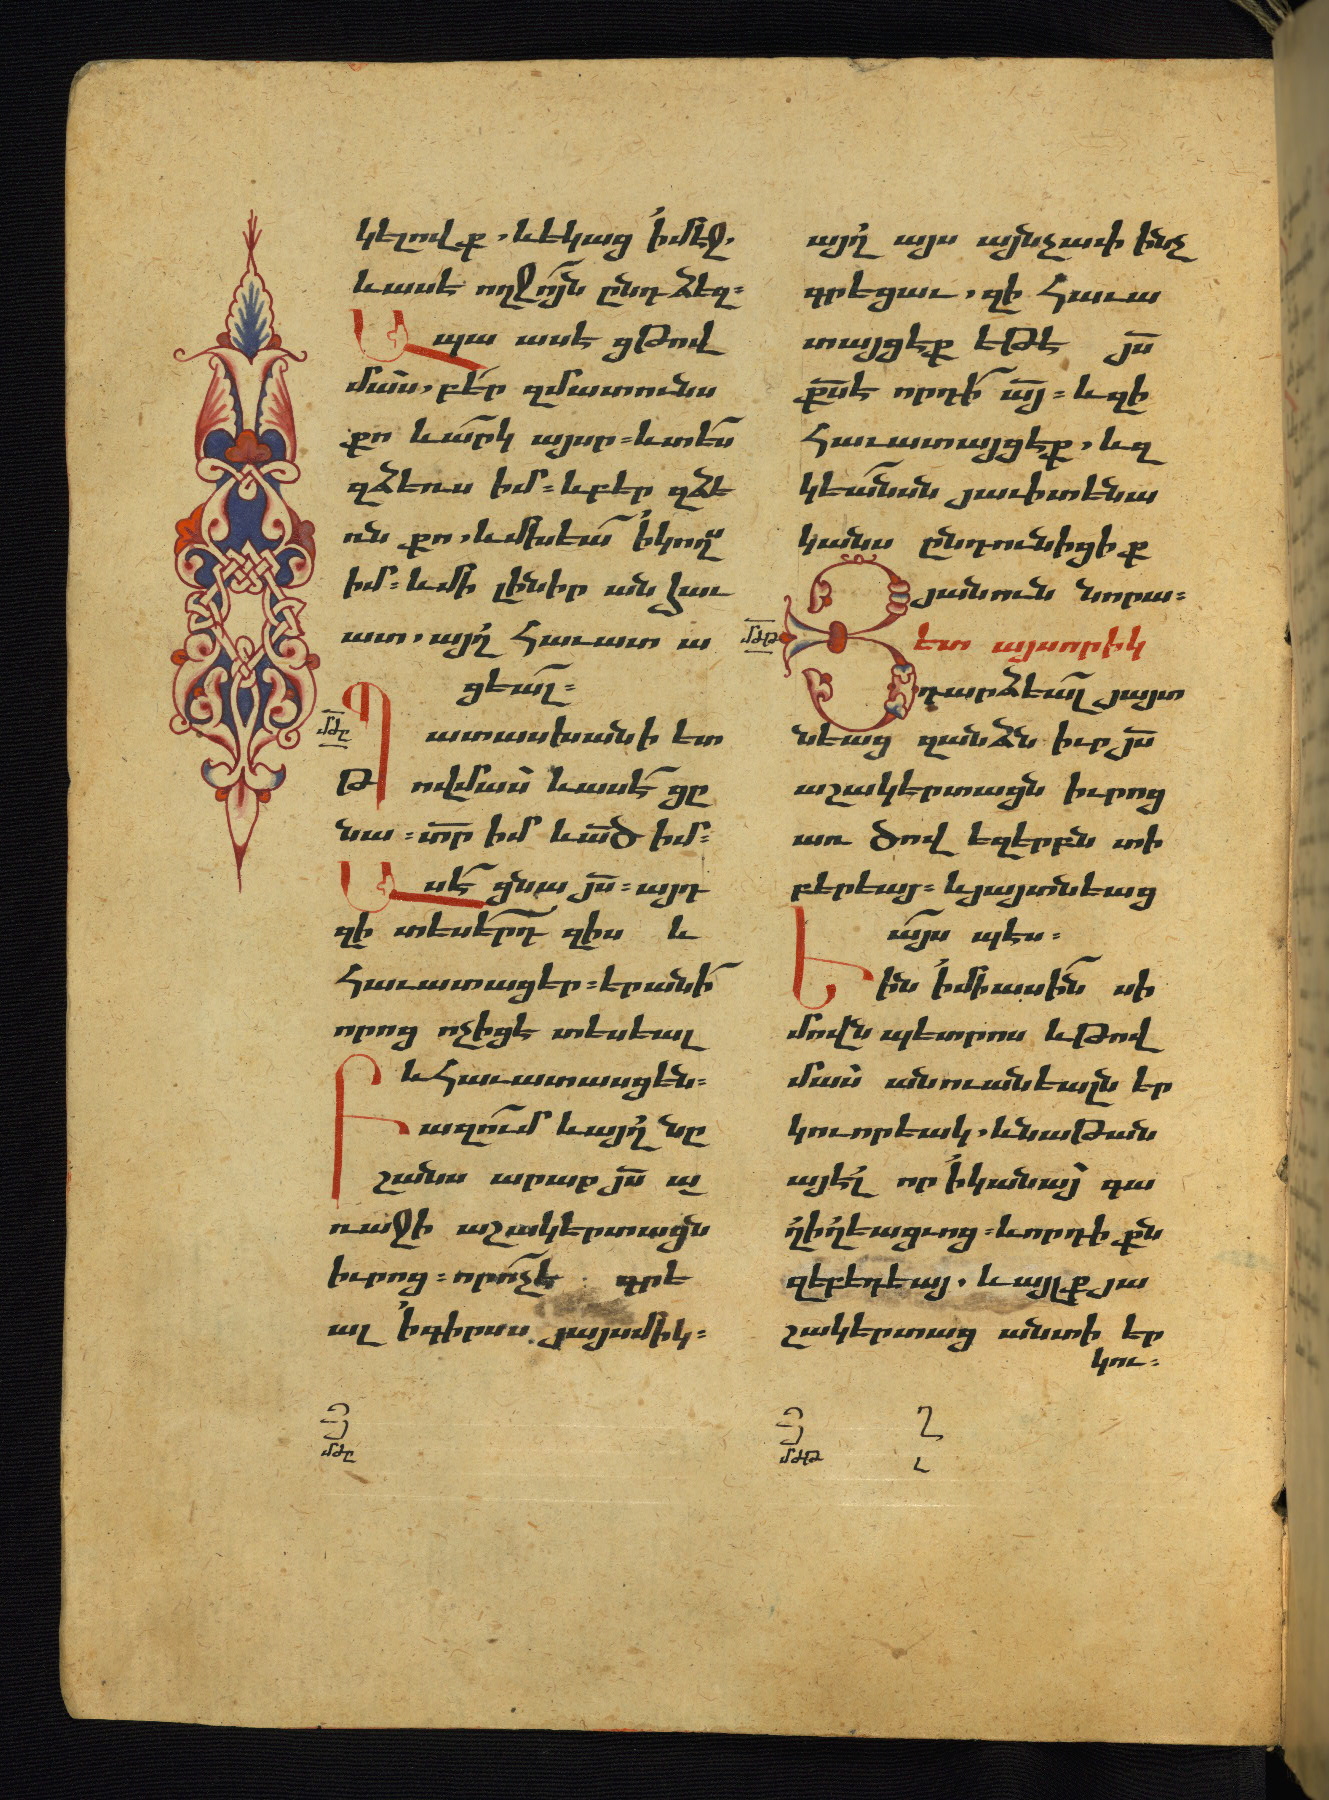 կելովք, և եկաց ՛ի մէջ,
և ասէ ողջո՜յն ընդ ձեզ:
Ապա ասէ ցԹով
մաս, բե՛ր զմատունս
քո և ա՛րկ այսր: և տե՛ս
զձեռս իմ: և բեր զձե
ռն քո, և մխեա՛ ՛ի կողս
իմ: և մի լինիր անհաւ
ատ, այղ հաւատ ա
ցեալ:
մժը
Պատասխանի ետ
Թովմաս և ասէ՛ ցը
նա: տր իմ և ած իմ:
Ասէ՛ ցնա յս: այդ
զի տեսե՛րդ զիս և
հաւատացեր: երանի՛
որոց ոչիցէ տեսեալ
և հաւատասցեն:
Բազո՛ւմ և այղ նը
շանս արար յս ա
ռաջի աշակերտացն
իւրոց: որո՛չէ գրե
ալ ՛ի գիրսս յայսմիկ:
այղ այս այնչափ ինչ
գրեցաւ, զի հաւա
տայցեք եթե յս
քսէ որդի՛ այ: և զի
հաւատայցեք, և զ
կեա՛նսն յաւիտենա
կանս ընդունիցիք
յանուն նորա:
մժթ
Յետ այսորիկ
դարձեա՛լ յայտ
նեաց զանձն իւր յս
աշակերտացն իւրոց
առ ծով եզերբն տի
բերեայ: և յայտնեաց
ա՛յս պէս:
Էին ՛ի միասի՛ն սի
մովն պետրոս և Թով
մաս անուանեալն եր
կուորեակ, և նաԹան
այէլ որ ՛ի կանայ գա
ղիղեացւոց: և որդիքն
զեբեդեայ, և այլք յա
շակերտաց անտի եր
կու:
մժը
մժթ
Ղ